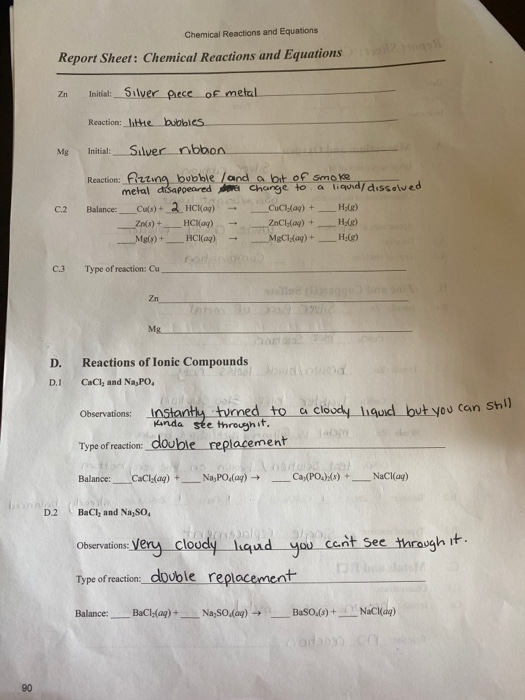 Chemical Reactions and Equations
Report Sheet: Chemical Reactions and Equations
Zn Initial: Silver piece of metal
Reaction: little bubbles
Mg Initial: Silver ribbon
Reaction: fizzing bubble / and a bit of smoke
metal disappeared change to a liquid/dissolved
C.2 Balance: ___Cu(s) + 2 HCl(aq) → ___CuCl₂(aq) + ___H₂(g)
___Zn(s) + ___HCl(aq) → ___ZnCl₂(aq) + ___H₂(g)
___Mg(s) + ___HCl(aq) → ___MgCl₂(aq) + ___H₂(g)
C.3 Type of reaction: Cu
Zn
Mg
D. Reactions of Ionic Compounds
D.1 CaCl₂ and Na₃PO₄
Observations: Instantly turned to a cloudy liquid but you can still
kinda see through it.
Type of reaction: double replacement
Balance: ___CaCl₂(aq) + ___Na₃PO₄(aq) → ___Ca₃(PO₄)₂(s) + ___NaCl(aq)
D.2 BaCl₂ and Na₂SO₄
Observations: Very cloudy liquid you can't see through it.
Type of reaction: double replacement
Balance: ___BaCl₂(aq) + ___Na₂SO₄(aq) → ___BaSO₄(s) + ___NaCl(aq)
90